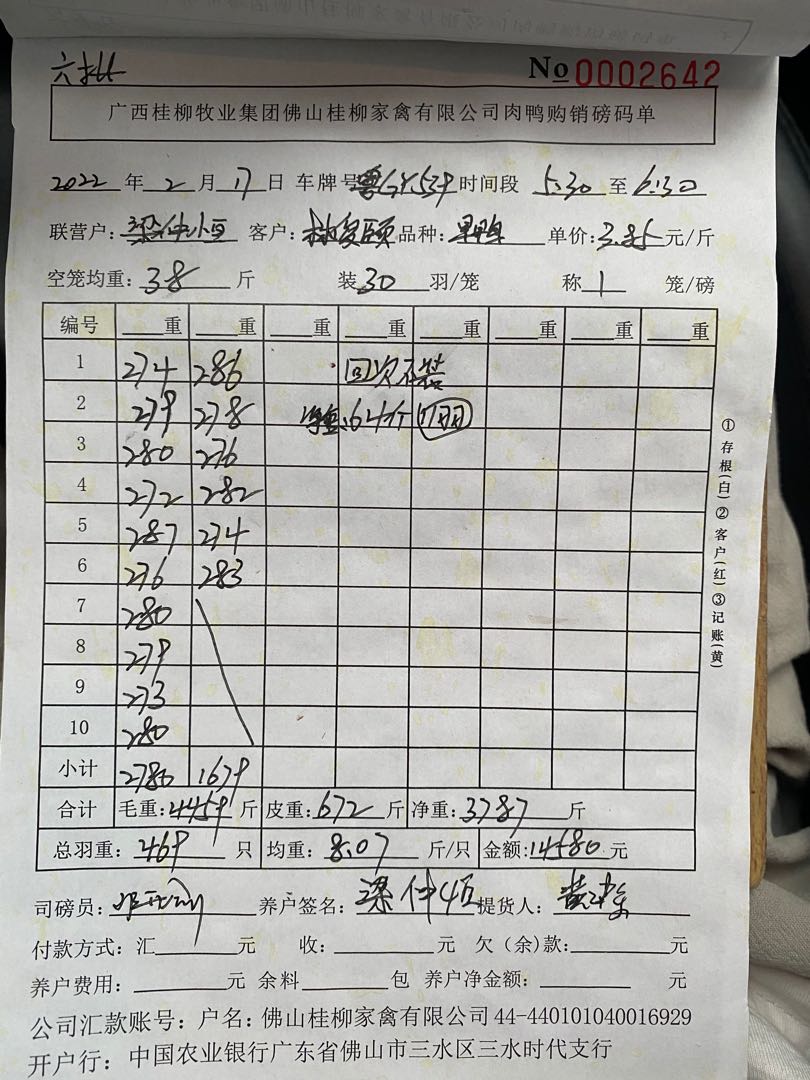 No 0002642
广西桂柳牧业集团佛山桂柳家禽有限公司肉鸭购销磅码单
2022 年 2 月 17 日 车牌号 时间段 5:30 至 6:30
联营户: 梁仲恒 客户: 品种: 单价: 3.85 元/斤
空笼均重: 38 斤 装 30 羽/笼 称 1 笼/磅
编号 重 重 重 重 重 重 重 重
1 274 286
2 279 278 64斤
3 280 276
4 272 282
5 287 274
6 276 283
7 280
8 279
9 273
10 280
小计 2780 1679
合计 毛重: 4459 斤 皮重: 672 斤 净重: 3787 斤
总羽重: 469 只 均重: 8.07 斤/只 金额: 14580 元
司磅员: 养户签名: 梁仲恒 提货人:
付款方式: 汇 元 收: 元 欠(余)款: 元
养户费用: 元 余料 包 养户净金额: 元
公司汇款账号: 户名: 佛山桂柳家禽有限公司 44-440101040016929
开户行: 中国农业银行广东省佛山市三水区三水时代支行
①存根(白)②客户(红)③记账(黄)